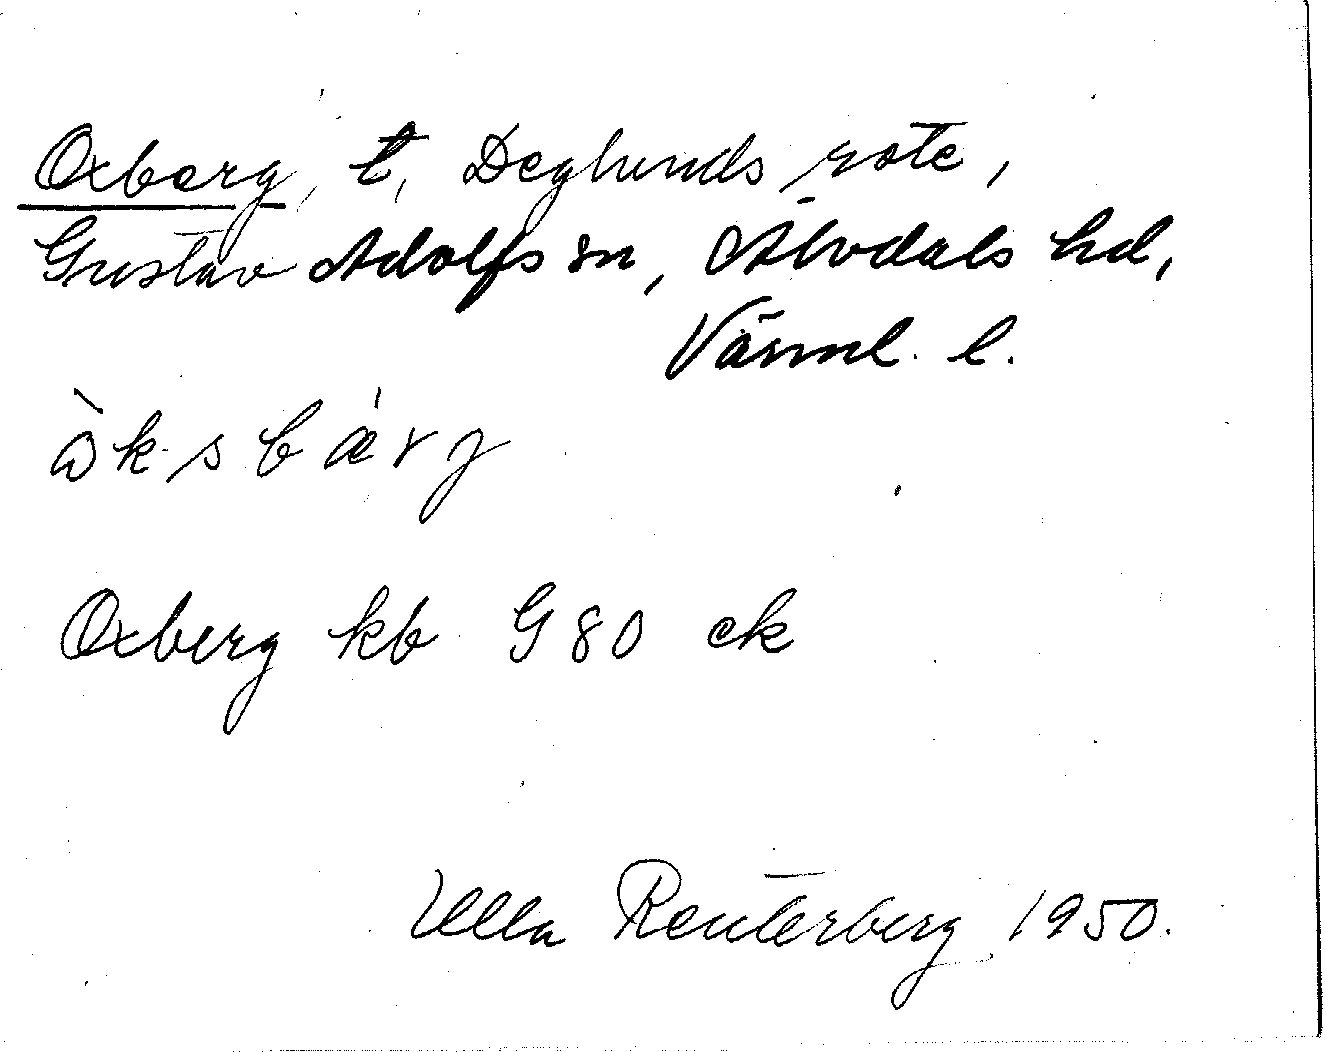 Oxberg, t, Deglunds rote,
Gustav Adolfs sn, Älvdals hd,
Värml. l.
ɷ̀ksbǽrj
Oxberg kb G 80 ek
Ulla Reuterberg 1950.